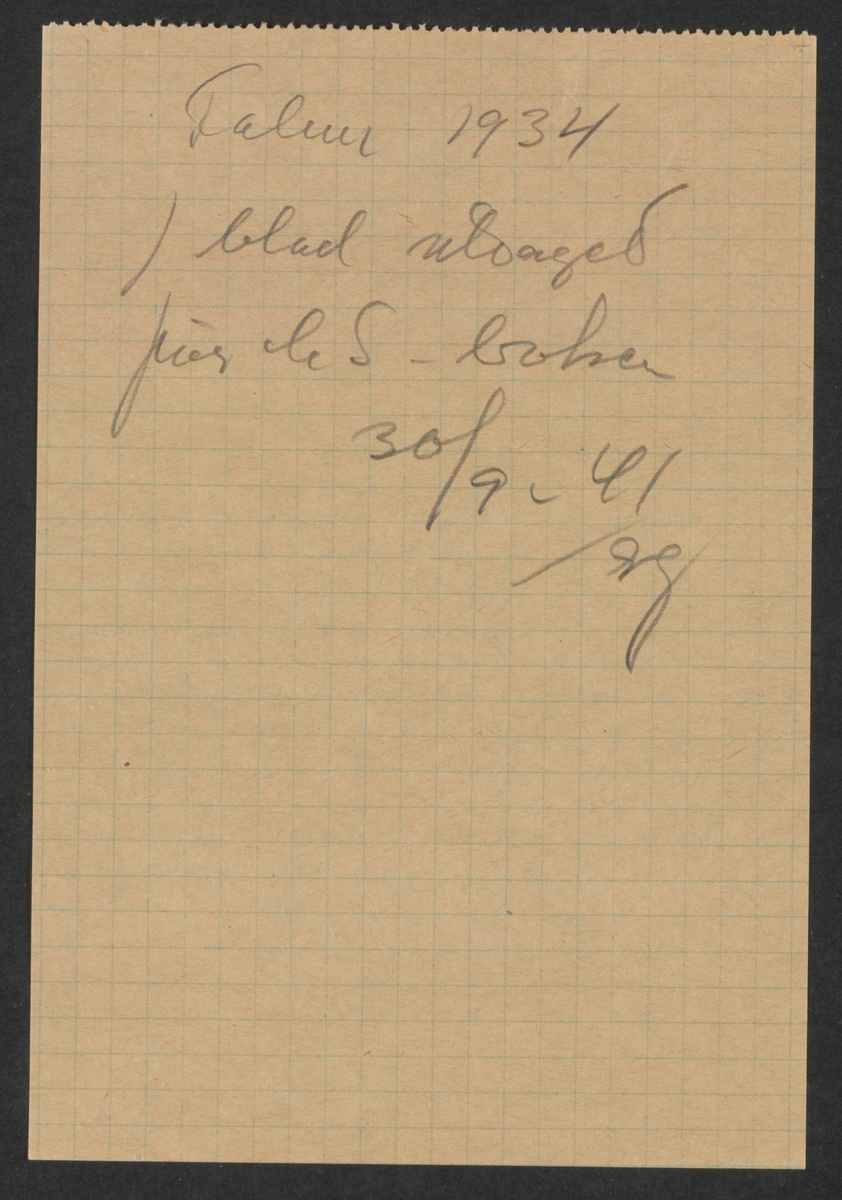 Falun 1934
1 blad uttaget
för - boken
30/9 - 41